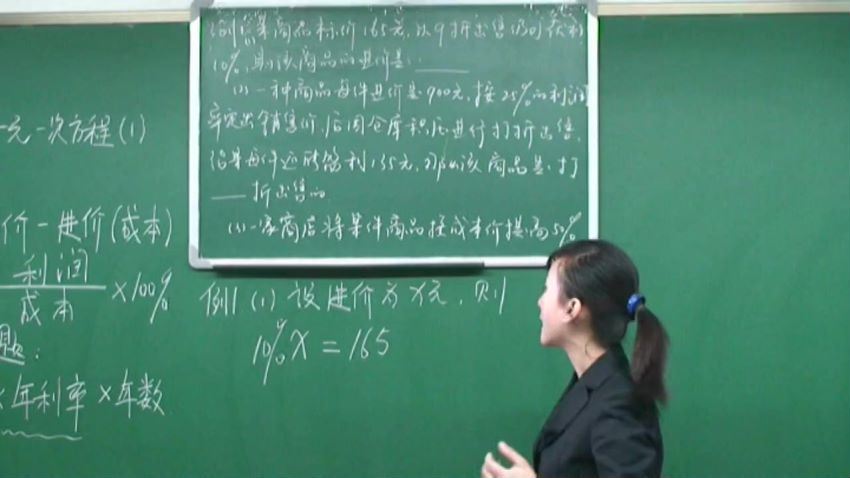 例1(1)某商品标价165元,以9折出售仍可获利
10%,则该商品的进价是:____
(2)一种商品每件进价是900元,按25%的利润
率定出销售价,后因仓库积压进行打折出售,
结果每件还能盈利135元,那么该商品是打
____折出售的
(3)一家商店将某件商品按成本价提高50%
元一次方程(1)
价-进价(成本)
利润
成本
×100%
题:
×年利率×年数
例1(1)设进价为x元,则
10%x=165